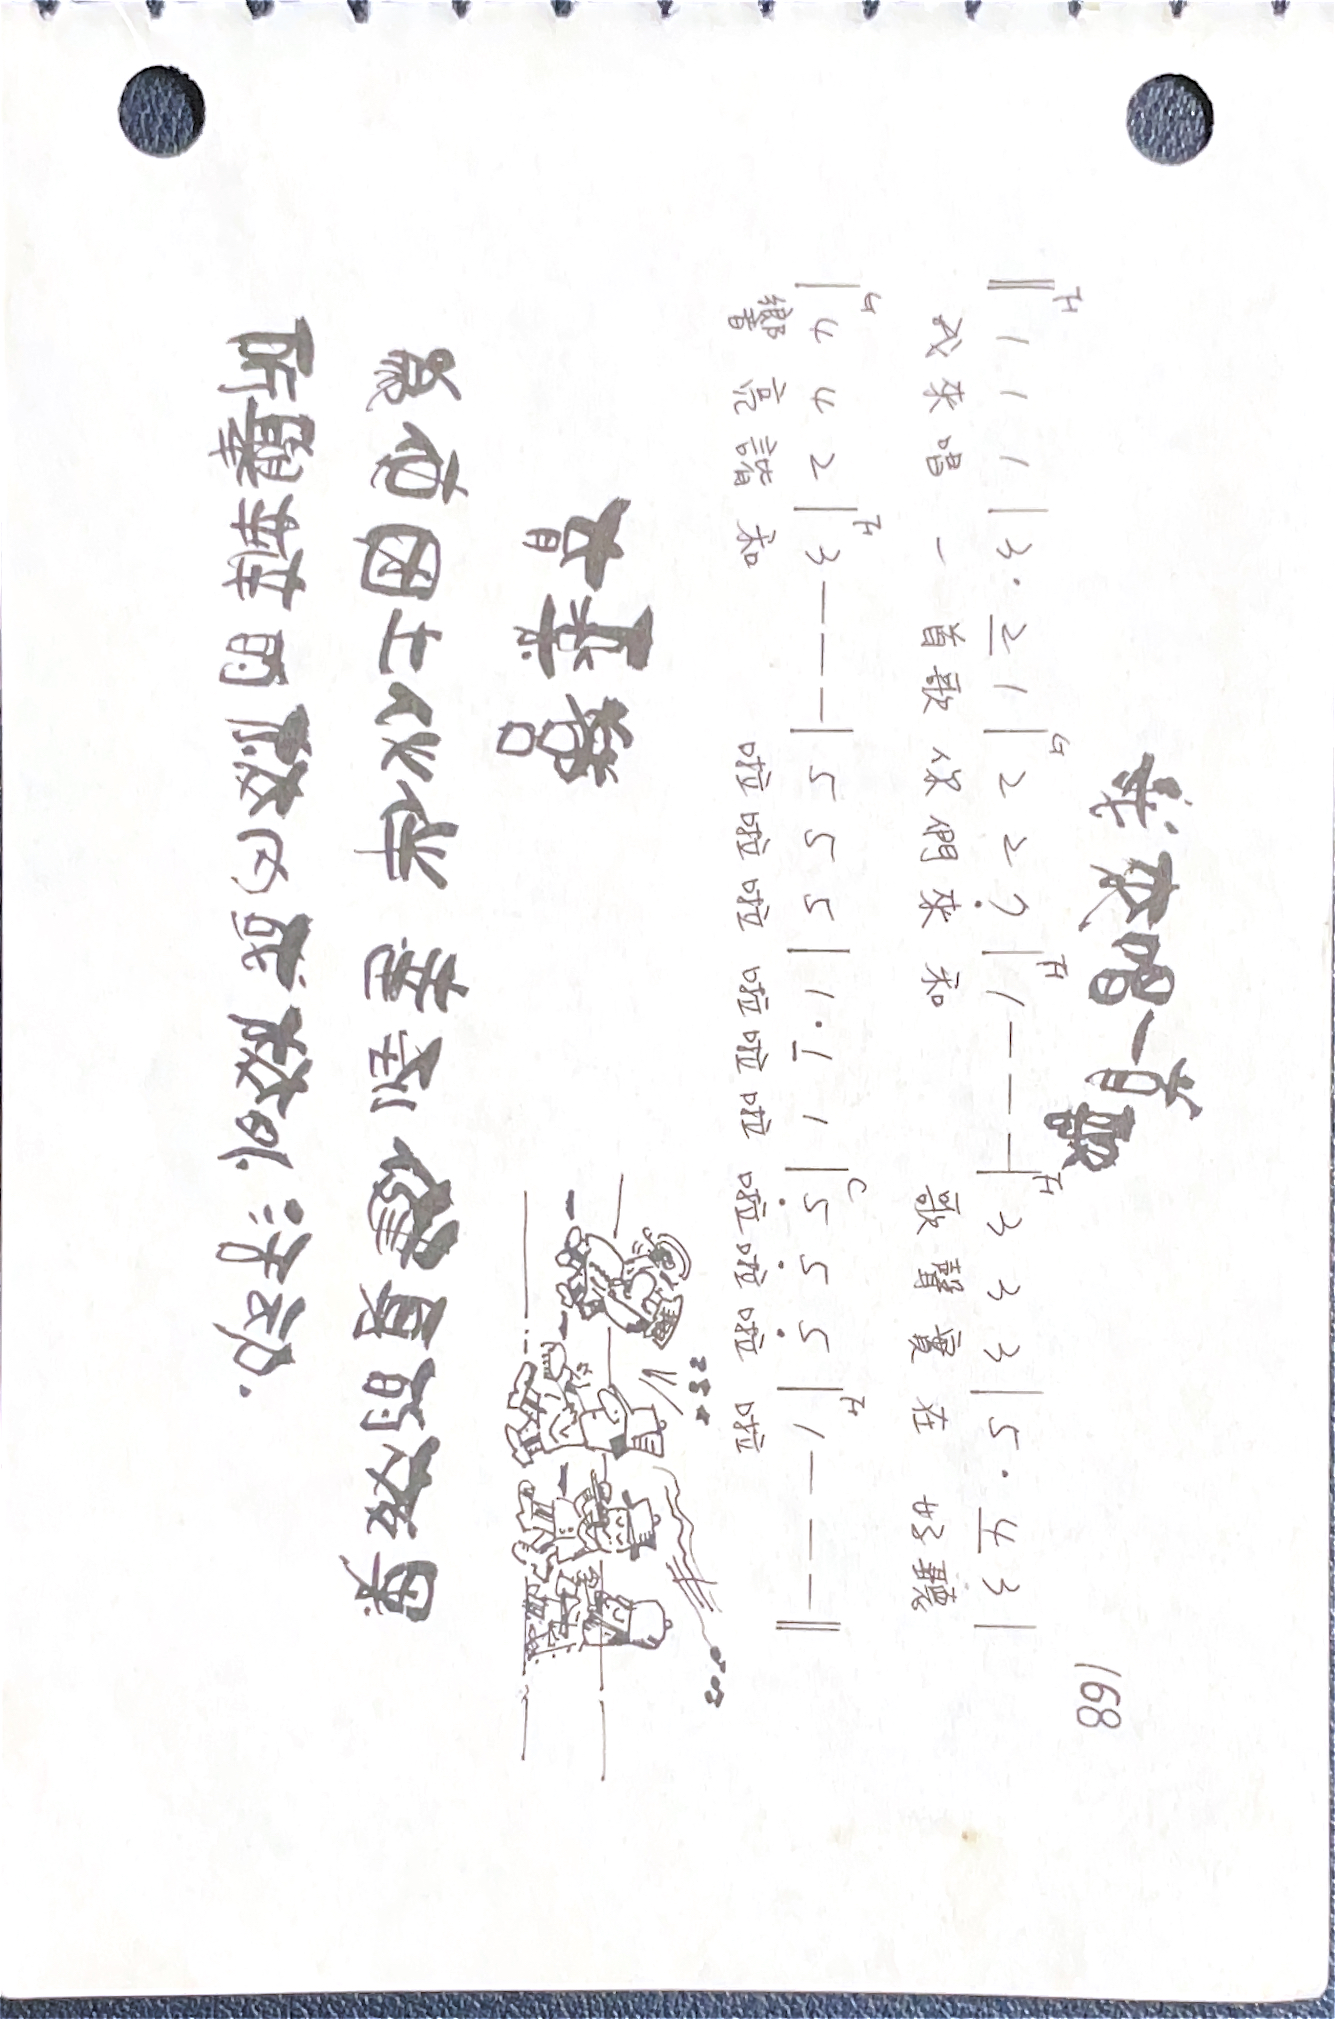 我來唱一首歌
168
F G F F
‖ 1 1 1 | 3 · 2 1 | 2 2 7 | 1 — — — | 3 3 3 | 5 · 4 3 |
我來唱 一 首歌 你們來 和 歌聲實 在 好聽
G F C F
| 4 4 2 | 3 — — — | 5 5 5 | 1 · 1 1 | 5 5 5 | 1 — — — ‖
響亮諧 和 啦啦啦 啦啦啦 啦啦啦 啦
育樂營
為使团士伙伴 達到健身的效果
所舉辦的旅內或旅外活动.